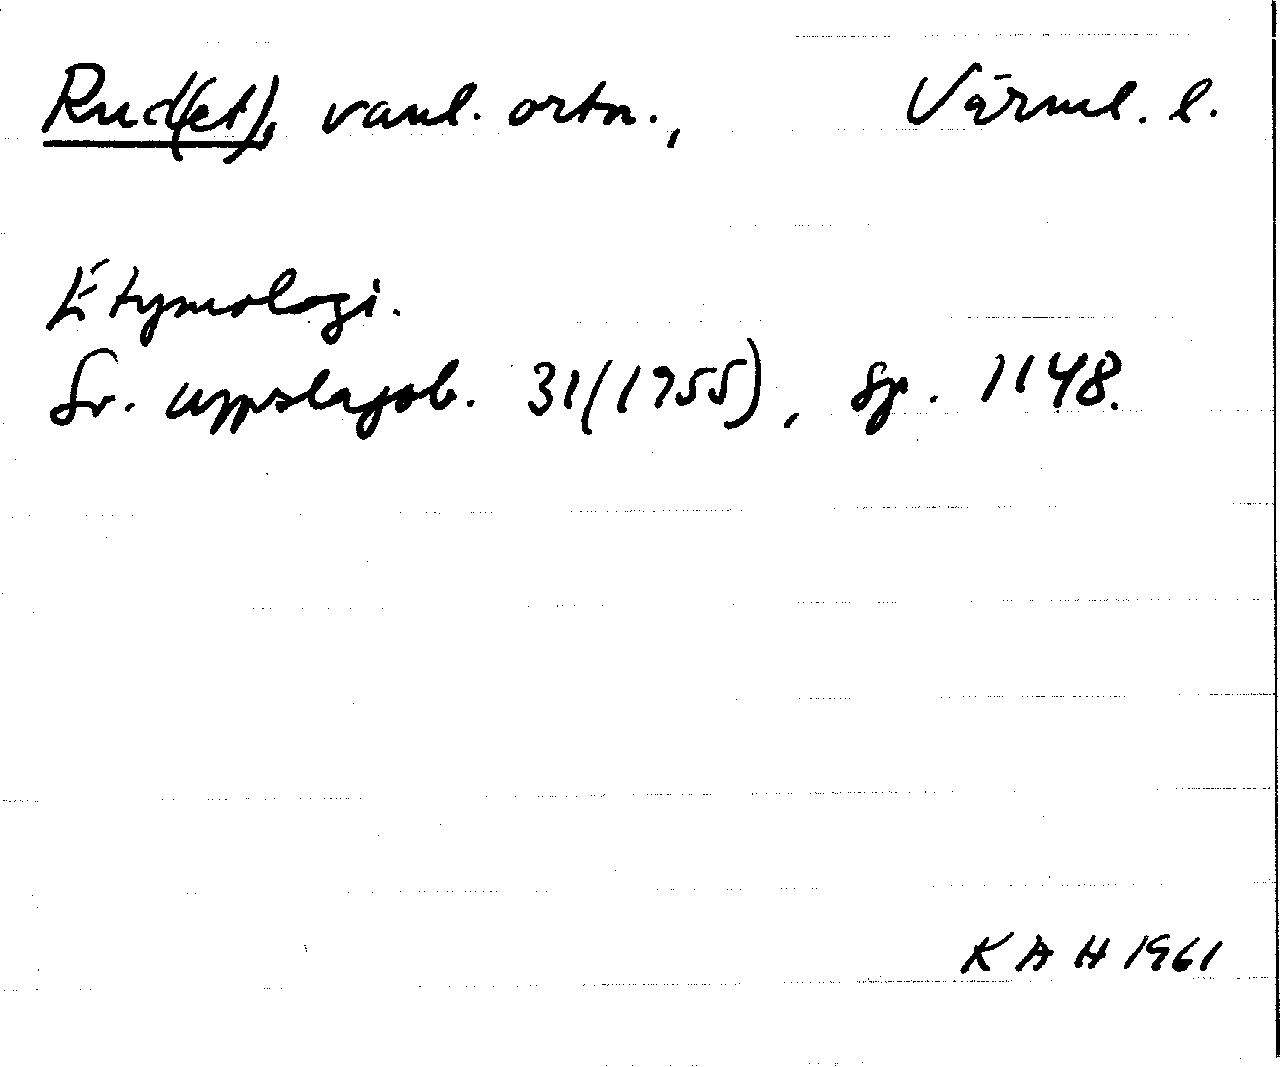 Rud(et), vanl. ortn., Värml. l.
Etymologi.
Sv. uppslagsb. 31(1955), sp. 1148.
KAH 1961